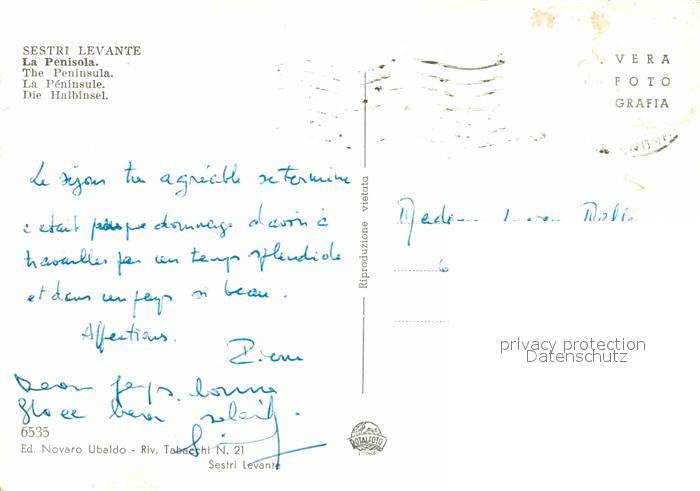 SESTRI LEVANTE
La Penisola.
The Peninsula.
La Péninsule.
Die Halbinsel.
VERA
FOTO
GRAFIA
Le séjour très agréable se termine
c'était presque dommage d'avoir à
travailler par un temps splendide
et dans un pays si beau.
Affections.
Pierre
Beau pays, bonne
et beau soleil.
6535
Ed. Novaro Ubaldo - Riv. Tabacchi N. 21
Sestri Levante
Riproduzione vietata
Madame
6
privacy protection
Datenschutz
ROTALFOTO